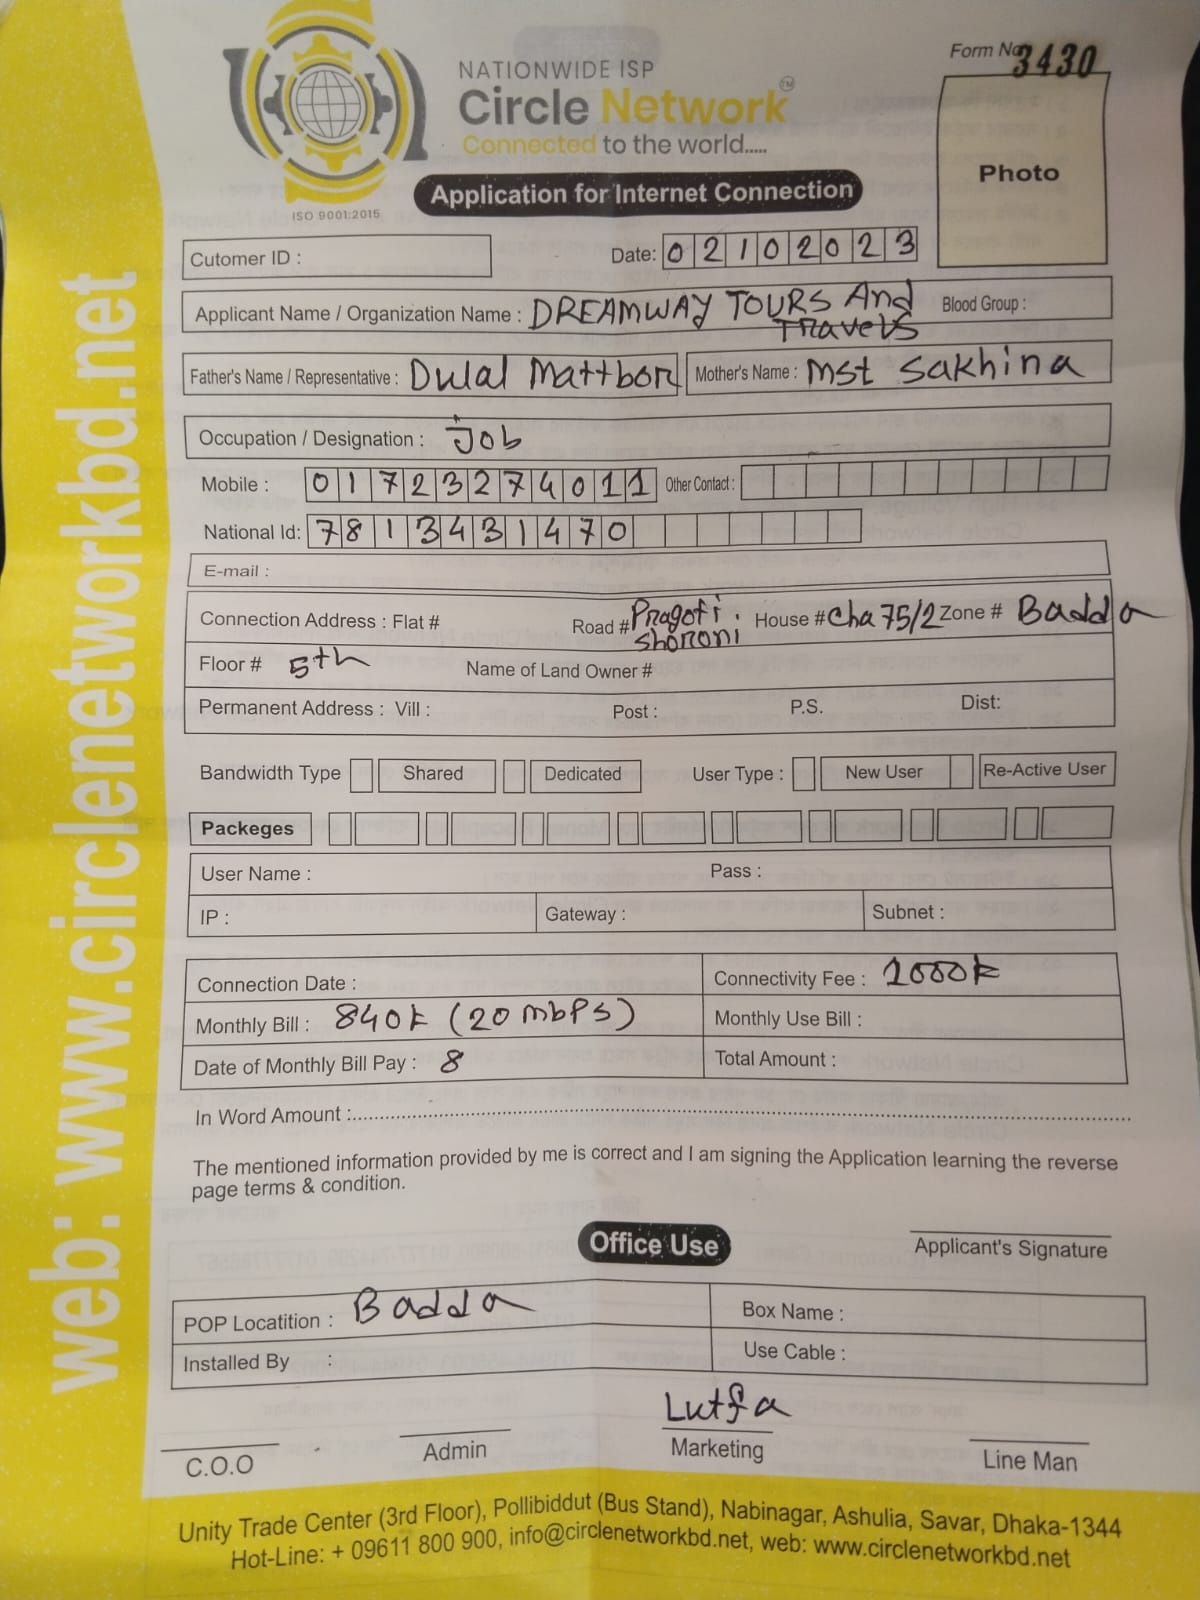 NATIONWIDE ISP
Circle Network TM
Connected to the world.....
ISO 9001:2015
Form No 3430
Photo
Application for Internet Connection
Cutomer ID :
Date: 02102023
Applicant Name / Organization Name : DREAMWAY TOURS And Travels
Blood Group :
Father's Name / Representative : Dulal Mattbor
Mother's Name : Mst Sakhina
Occupation / Designation : Job
Mobile : 01723274011 Other Contact :
National Id: 7813431470
E-mail :
Connection Address : Flat # Road # Pragoti Shoroni House # Cha 75/2 Zone # Badda
Floor # 5th Name of Land Owner #
Permanent Address : Vill : Post : P.S. Dist:
Bandwidth Type Shared Dedicated User Type : New User Re-Active User
Packeges
User Name : Pass :
IP : Gateway : Subnet :
Connection Date : Connectivity Fee : 1000k
Monthly Bill : 840k (20 mbps) Monthly Use Bill :
Date of Monthly Bill Pay : 8 Total Amount :
In Word Amount :
The mentioned information provided by me is correct and I am signing the Application learning the reverse
page terms & condition.
Applicant's Signature
Office Use
POP Locatition : Badda Box Name :
Installed By : Use Cable :
Lutfa
C.O.O Admin Marketing Line Man
Unity Trade Center (3rd Floor), Pollibiddut (Bus Stand), Nabinagar, Ashulia, Savar, Dhaka-1344
Hot-Line: + 09611 800 900, info@circlenetworkbd.net, web: www.circlenetworkbd.net
web: www.circlenetworkbd.net